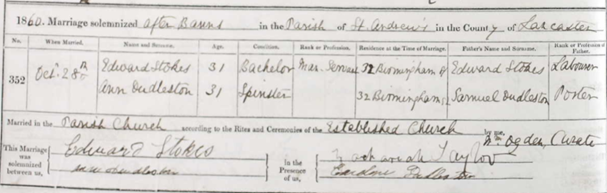 1860. Marriage solemnized after Banns in the Parish of St. Andrew's in the County of Lancaster
No. When Married. Name and Surname. Age. Condition. Rank or Profession. Residence at the Time of Marriage. Father's Name and Surname. Rank or Profession of Father.
352 Oct. 28th Edward Stokes 31 Bachelor Man Servant 32 Birmingham St Edward Stokes Labourer
Ann Dudleston 31 Spinster 32 Birmingham Samuel Dudleston Porter
Married in the Parish Church according to the Rites and Ceremonies of the Established Church Wm Ogden, Curate
This Marriage was solemnized between us, Edward Stokes In the Presence of us, Taylor
Ann Dudleston